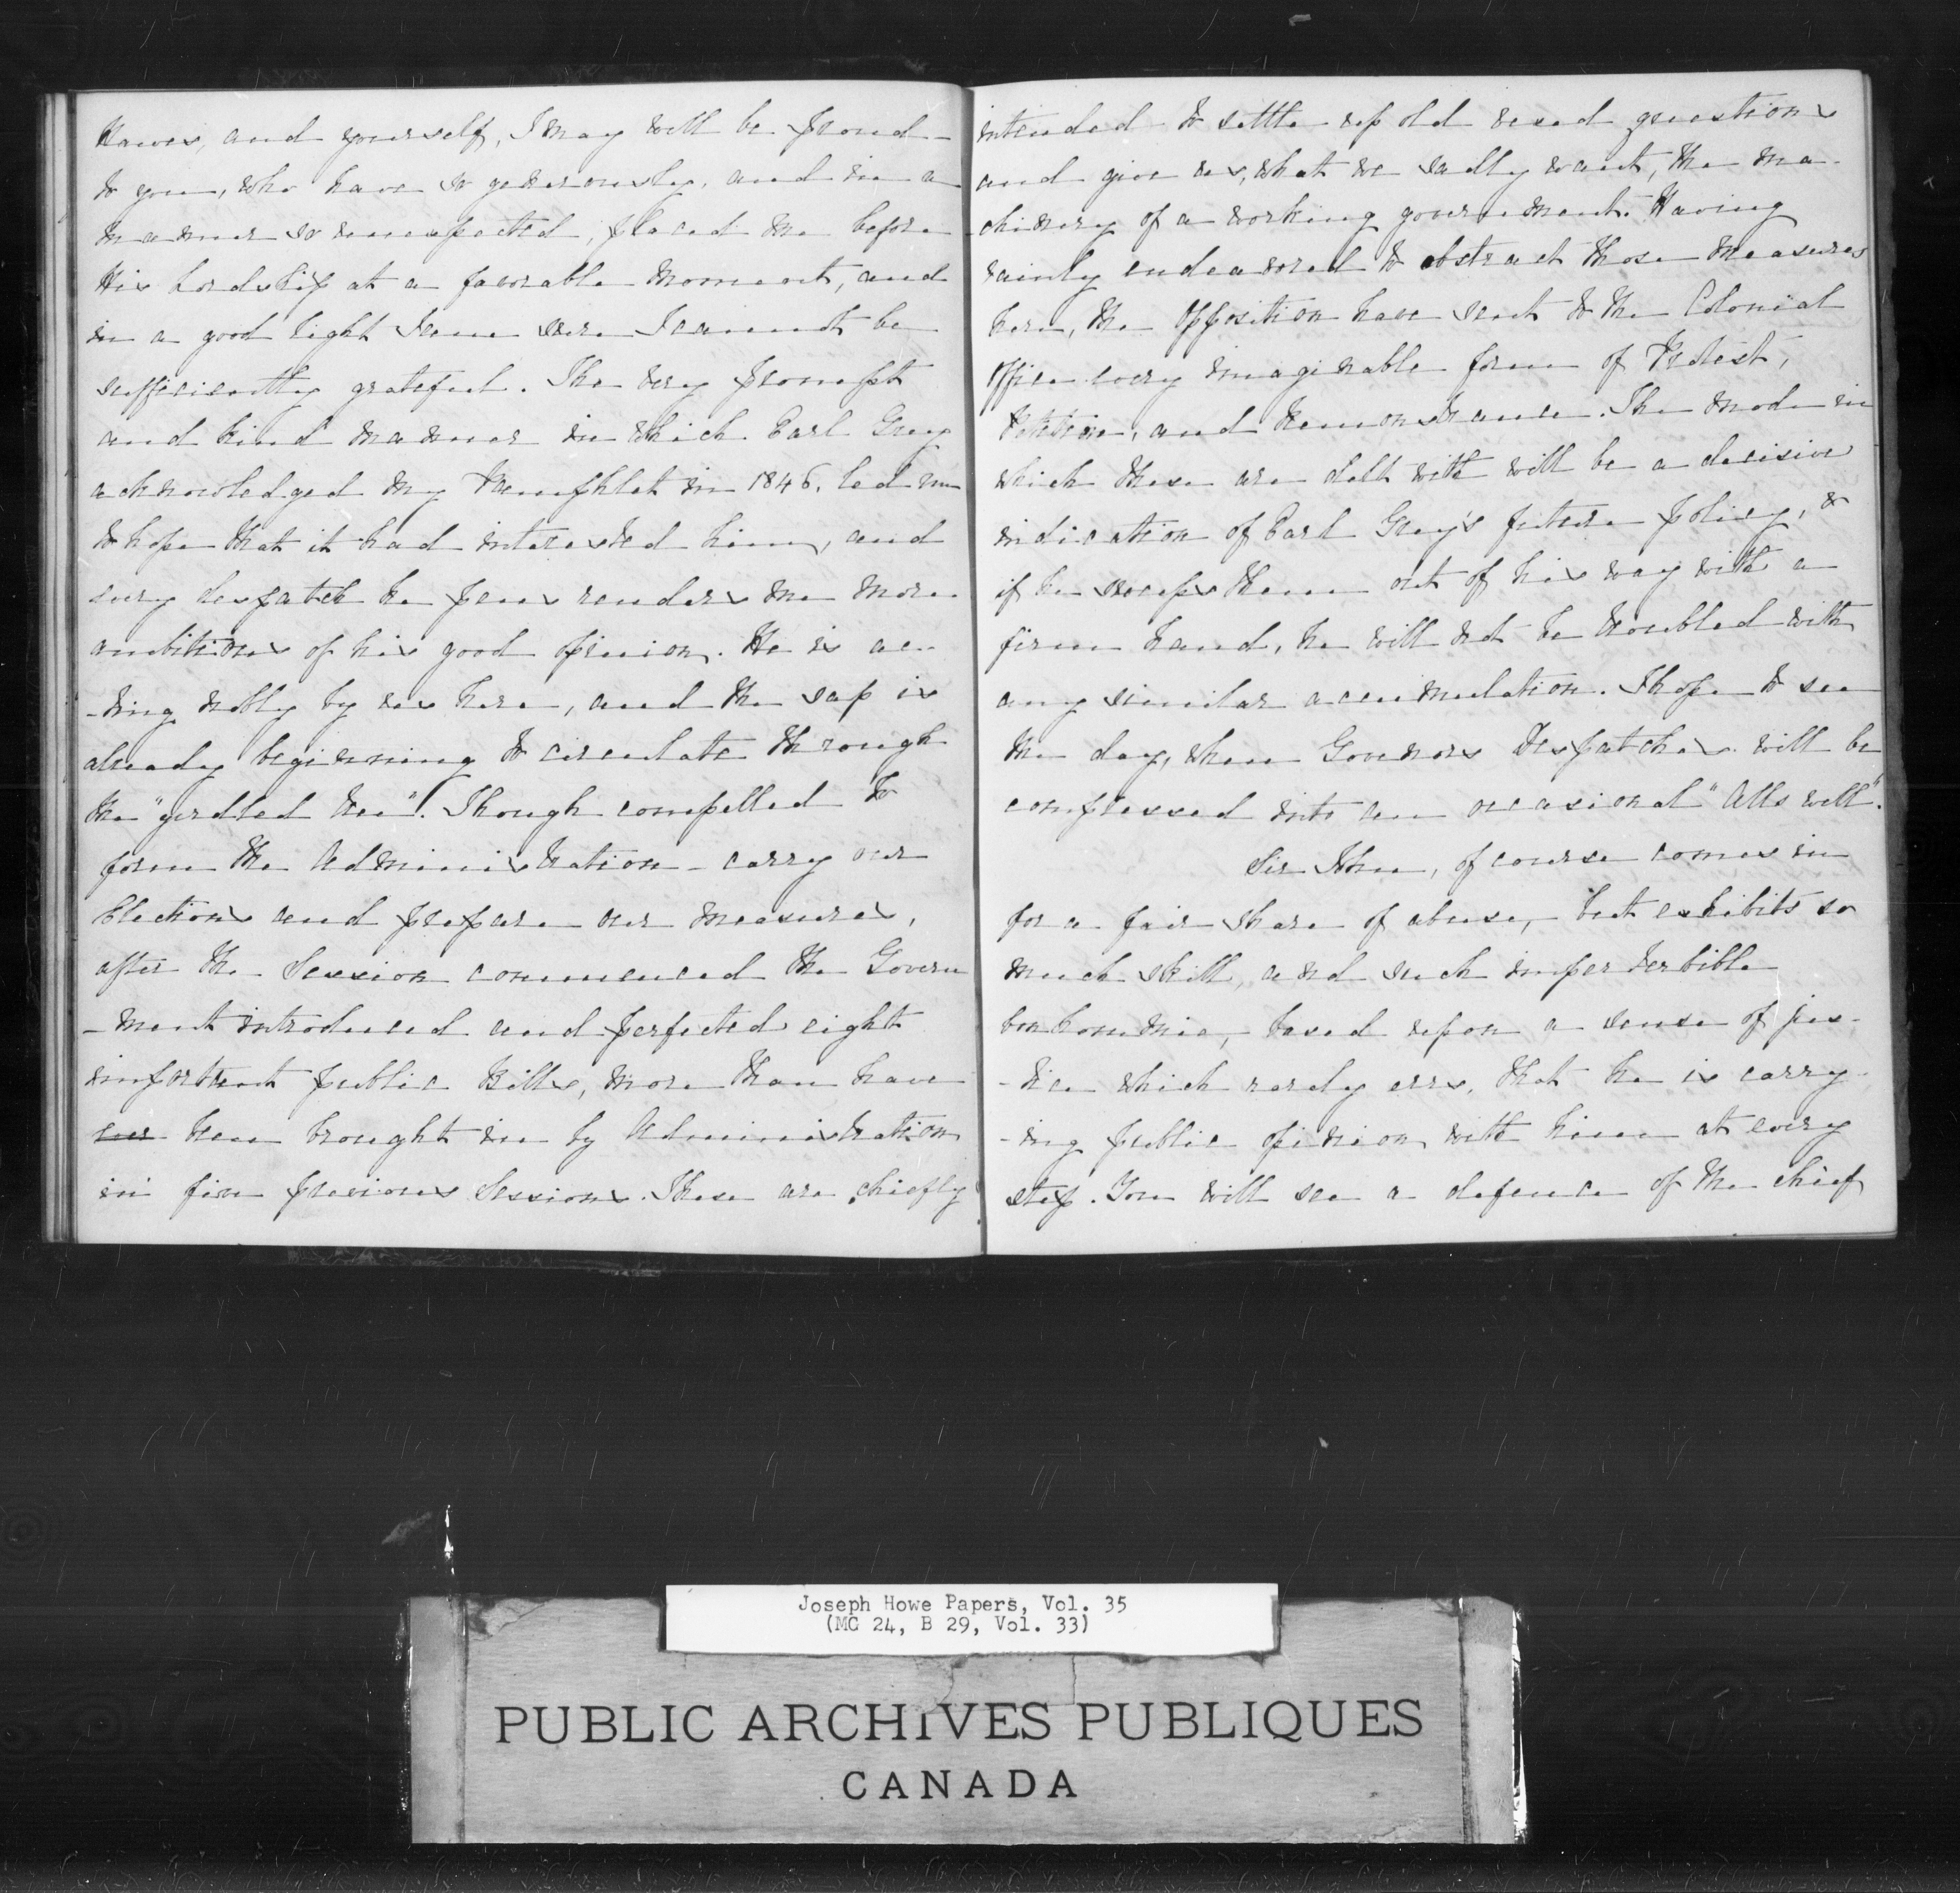 Hawes, and yourself, I may well be proud -
to you, who have so generously, and in a
manner so unexpected, placed me before
His Lordship at a favorable moment, and
in a good light I am sure I cannot be
sufficiently grateful. The very prompt
and kind manner in which Earl Grey
acknowledged my Pamphlet in 1846, led me
to hope that it had interested him, and
every despatch he pens renders me more
ambitious of his good opinion. He is ac-
-ting nobly by us here, and the sap is
already beginning to circulate through
the "girdled tree". Though compelled to
form the Administration - carry our
Elections and prepare our measures,
after the Session commenced the Govern
-ment introduced and perfected eight
important public Bills, more than have
ever been brought in by Administration
in five previous Sessions. These are chiefly
intended to settle up old vexed questions
and give us, what we sadly want, the ma-
-chinery of a working government. Having
vainly endeavored to obstruct those measures
here, the Opposition have sent to the Colonial
Office every imaginable form of Protest,
Petition, and Remonstrance. The mode in
which these are delt with will be a decisive
indication of Earl Grey's future policy, &
if he sweeps them out of his way with a
firm hand, he will not be troubled with
any similar accumulation. I hope to see
the day, when Govenors Despatches will be
compressed into an occasional "Alls well".
Sir John, of course comes in
for a fair share of abuse, but exhibits so
much skill, and such imperterbible
bonhommie, based upon a sense of jus-
-tice which rarely errs, that he is carry-
-ing public opinion with him at every
step. You will see a defence of the chief
Joseph Howe Papers, Vol. 35
(MC 24, B 29, Vol. 33)
PUBLIC ARCHIVES PUBLIQUES
CANADA